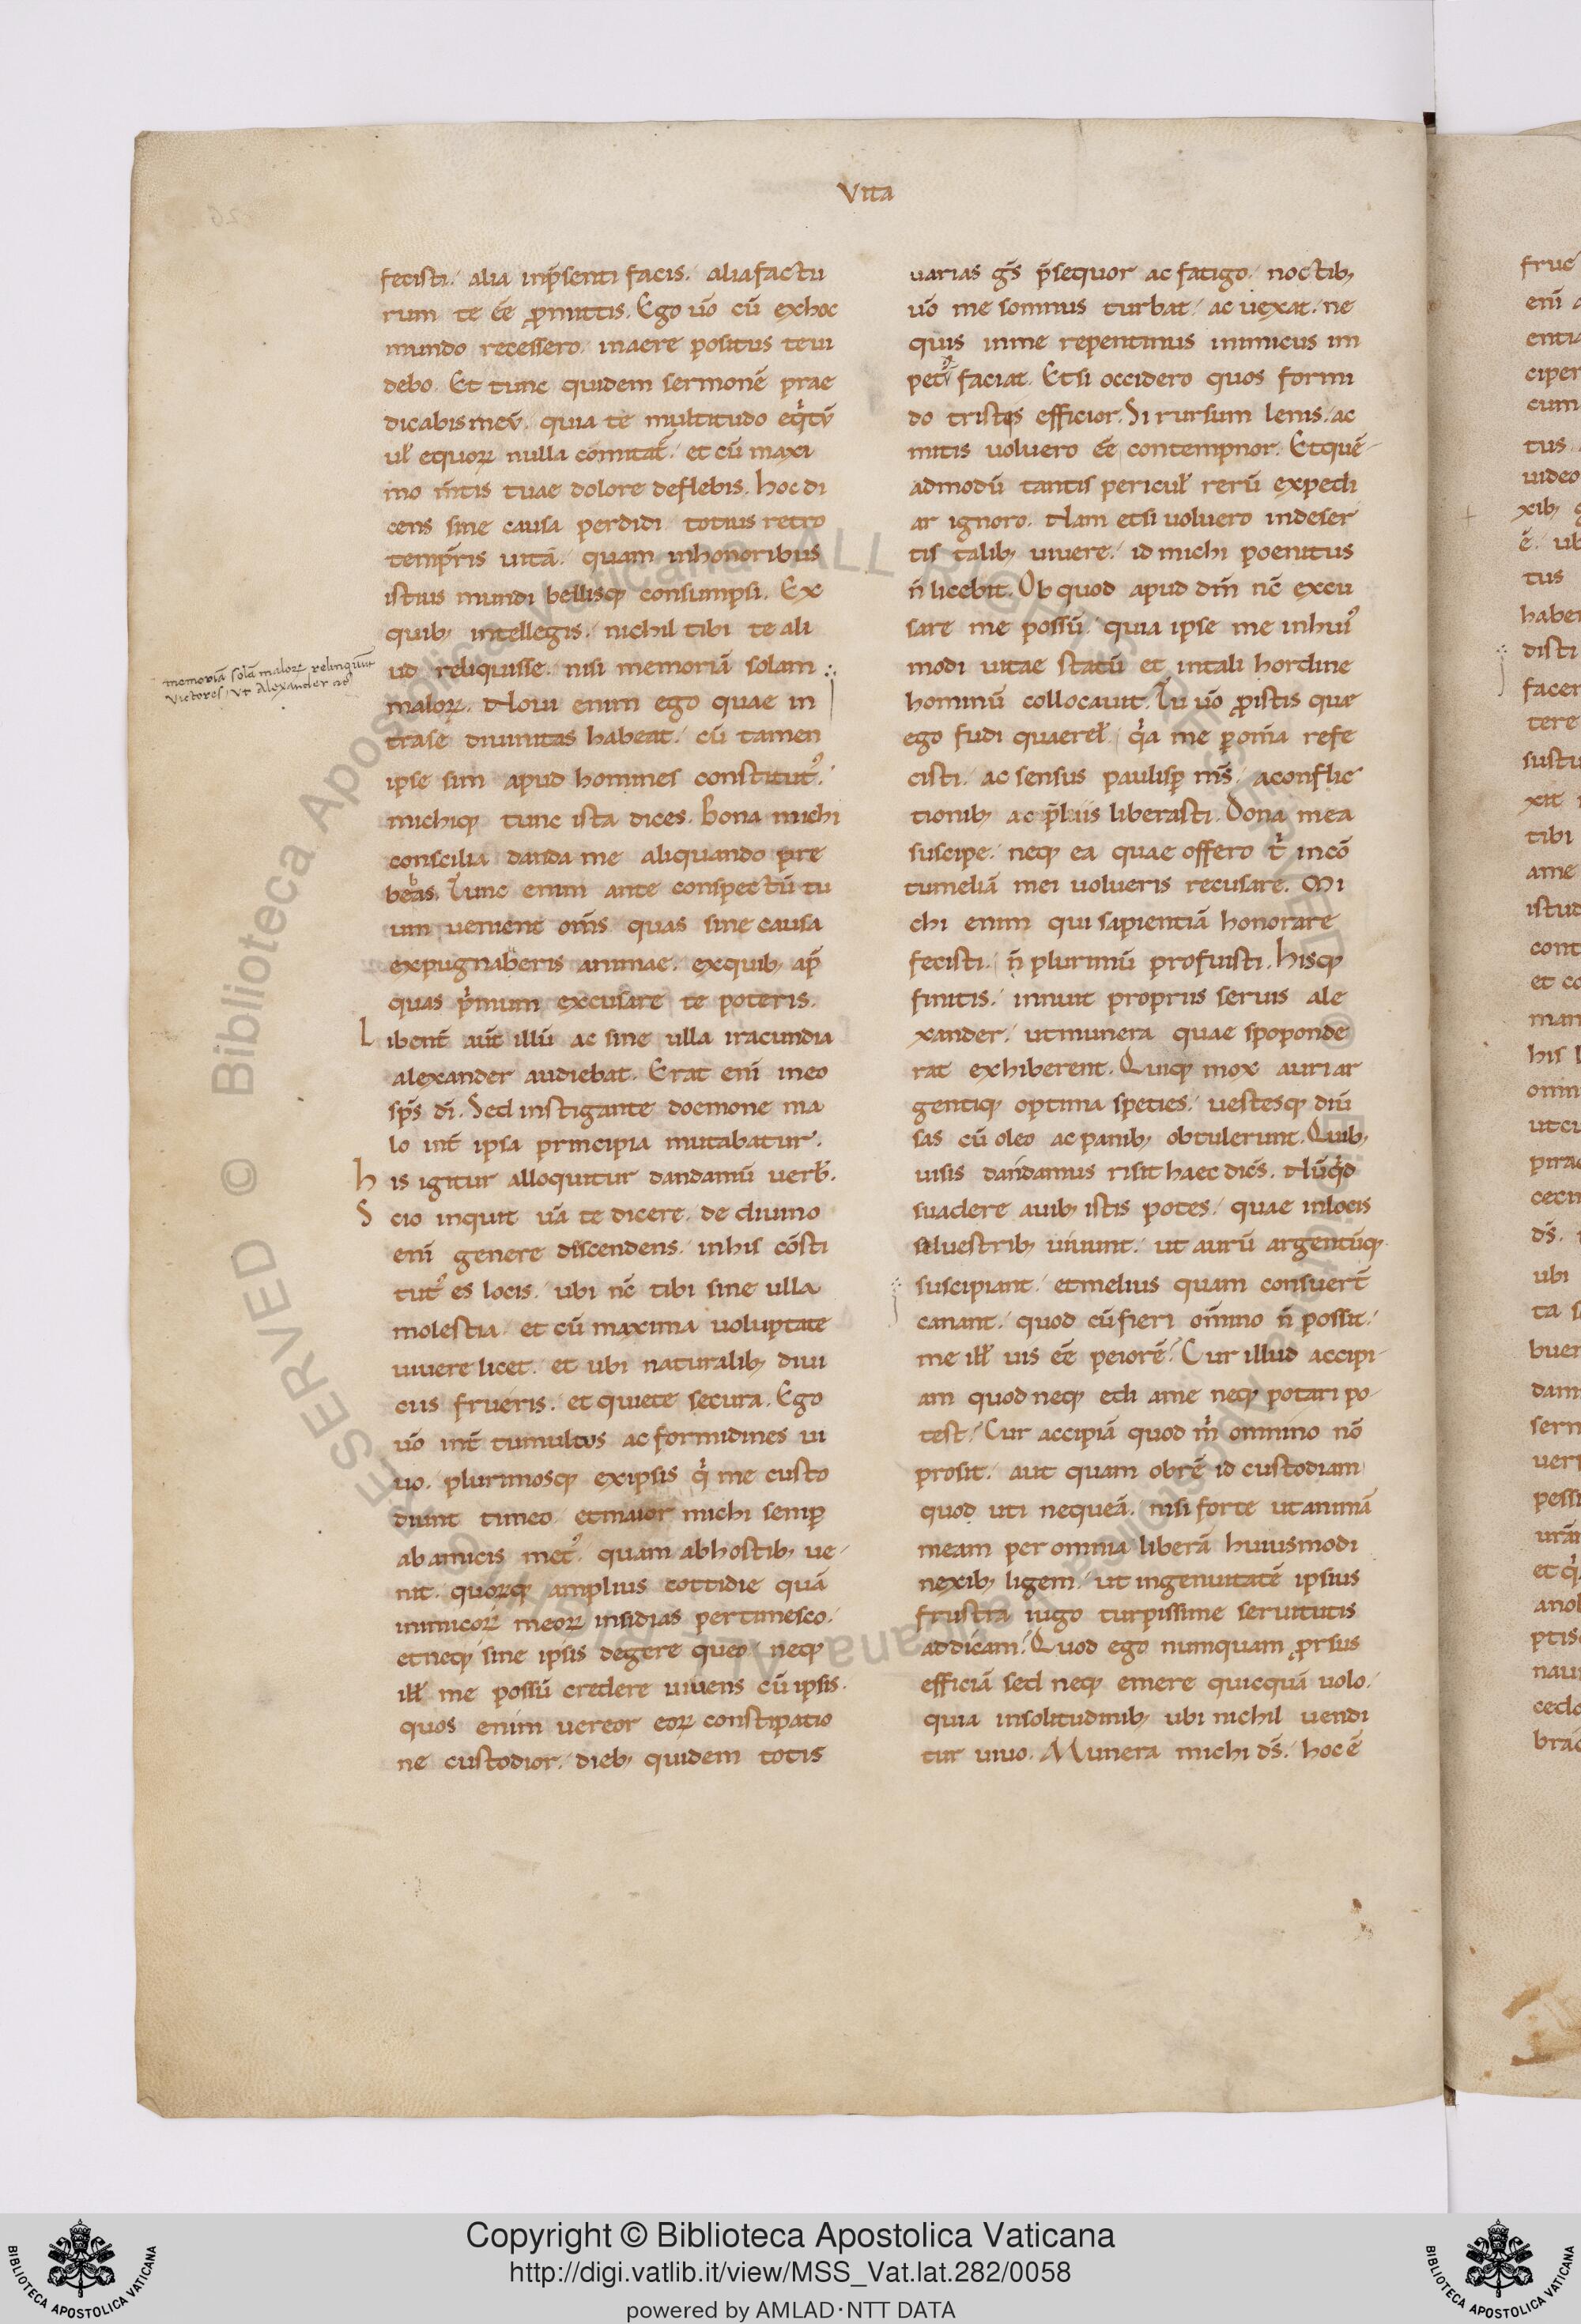 Vita
fecisti. alia inp̄senti facis. alia factu
rum te ēē ꝓmittis. Ego ůo cū exhoc
mundo recessero. inaere positus te ui
debo. Et tunc quidem sermonē prae
dicabis meū. quia te multitudo eq̇tū
ul̃ equoꝝ nulla comitat̃. et cū maxi
mo m̄tis tuae dolore deflebis. Hoc di
cens sine causa perdidi totius retro
temp̄ris uitā. quam inhonoribus
istius mundi bellisq; consumpsi. Ex
quib; intellegis. nichil tibi te ali
ud reliquisse. nisi memoriā solam
maloꝝ. Noui enim ego quae in
trase diuinitas habeat. cū tamen
ipse sim apud homines constitut᾽.
michiq; tunc ista dices. Bona michi
conscilia danda me aliquando pre
beas. Tunc enim ante conspectū tu
um uenient om̄s quas sine causa
expugnaberis animae. exquib; ap̄
quas p̓mum excusare te poteris.
Libent̃ aūt illū ac sine ulla iracundia
alexander audiebat. Erat enī ineo
sp̄s dī. Sed instigante doemone ma
lo int̃ ipsa principia mutabatur.
His igitur alloquitur dandamū uerb̃.
Scio inquit uā te dicere. de diuino
enī genere discendens. inhis cōsti
tut᾽ es locis. ubi nc̄ tibi sine ulla
molestia. et cū maxima uoluptate
uiuere licet. et ubi naturalib; diui
ciis frueris. et quiete secura. Ego
ůo int̃ tumultus ac formidines ui
uo. plurimosq; exipsis q̇ me custo
diunt timeo. etmaior michi semꝑ
abamicis met᾽. quam abhostib; ue-
nit. quoꝝq; amplius cottidie quā
inimicoꝝ meoꝝ insidias pertimesco.
etneq; sine ipsis degere queo. neq;
ill̃ me possū credere uiuens cū ipsis.
quos enim uereor eoꝝ constipatio
ne custodior. dieb; quidem totis
memoriā solā maloꝝ relinquūt
victores, vt Alexander
uarias gēs p̄sequor ac fatigo. noctib;
ůo me somnus turbat. ac uexat. ne
quis inme repentinus inimicus im
petū faciat. Etsi occidero quos formi
do tristes efficior. Si rursum lenis. ac
mitis uoluero ēē contempnor. Etquē-
admodū tantis pericul̃ rerū expedi
ar ignoro. Nam etsi uoluero indeser
tis talib; uiuere. id michi poenitus
n̄ licebit. Ob quod apud dm̄ nc̄ excu
sare me possū. quia ipse me inhui᾽
modi uitae statū et intali hordine
hominū collocauit. Tu ůo ꝓistis que
ego fudi quaerel̃. q̇a me ꝑom̄ia refe
cisti. ac sensus paulisꝑ m̄s. aconflic
tionib; ac p̄liis liberasti. Dona mea
suscipe. neq; ea quae offero t̓ incō
tumeliā mei uolueris recusare. Mi
chi enim qui sapientiā honorare
fecisti. n̄ plurimū profuisti. Hisq;
finitis. innuit propriis seruis ale
xander. utmunera quae spoponde
rat exhiberent. Quiq; mox auri ar
gentiq; optima speties. uestesq; diů
sas cū oleo ac panib; obtulerunt. Quib;
uisis dandamus risit haec dicēs. Nūq̇d
suadere auib; istis potes. quae inlocis
siluestrib; uiuunt. ut aurū argentūq;
suscipiant. etmelius quam consuert̄
canant. quod cū fieri om̄ino n̄ possit.
me ill̃ uis ēē peiorē? Cur illud accipi-
am quod neq; edi ame neq; potari po-
test? Cur accipiā quod m̓ omnino nō
prosit. aut quam obrē id custodiam
quod uti nequeā. nisi forte ut animā
meam per omnia liberā huiusmodi
nexib; ligem. ut ingenuitatē ipsius
frustra iugo turpissime seruitutis
addicam? Quod ego numquam ꝓrsus
efficiā sed neq; emere quicquā uolo.
quia insolitudinib; ubi nichil uendi
tur uiuo. Munera michi ds̄. hoc ē
Copyright © Biblioteca Apostolica Vaticana
http://digi.vatlib.it/view/MSS_Vat.lat.282/0058
powered by AMLAD·NTT DATA
BIBLIOTECA APOSTOLICA VATICANA
BIBLIOTECA APOSTOLICA VATICANA